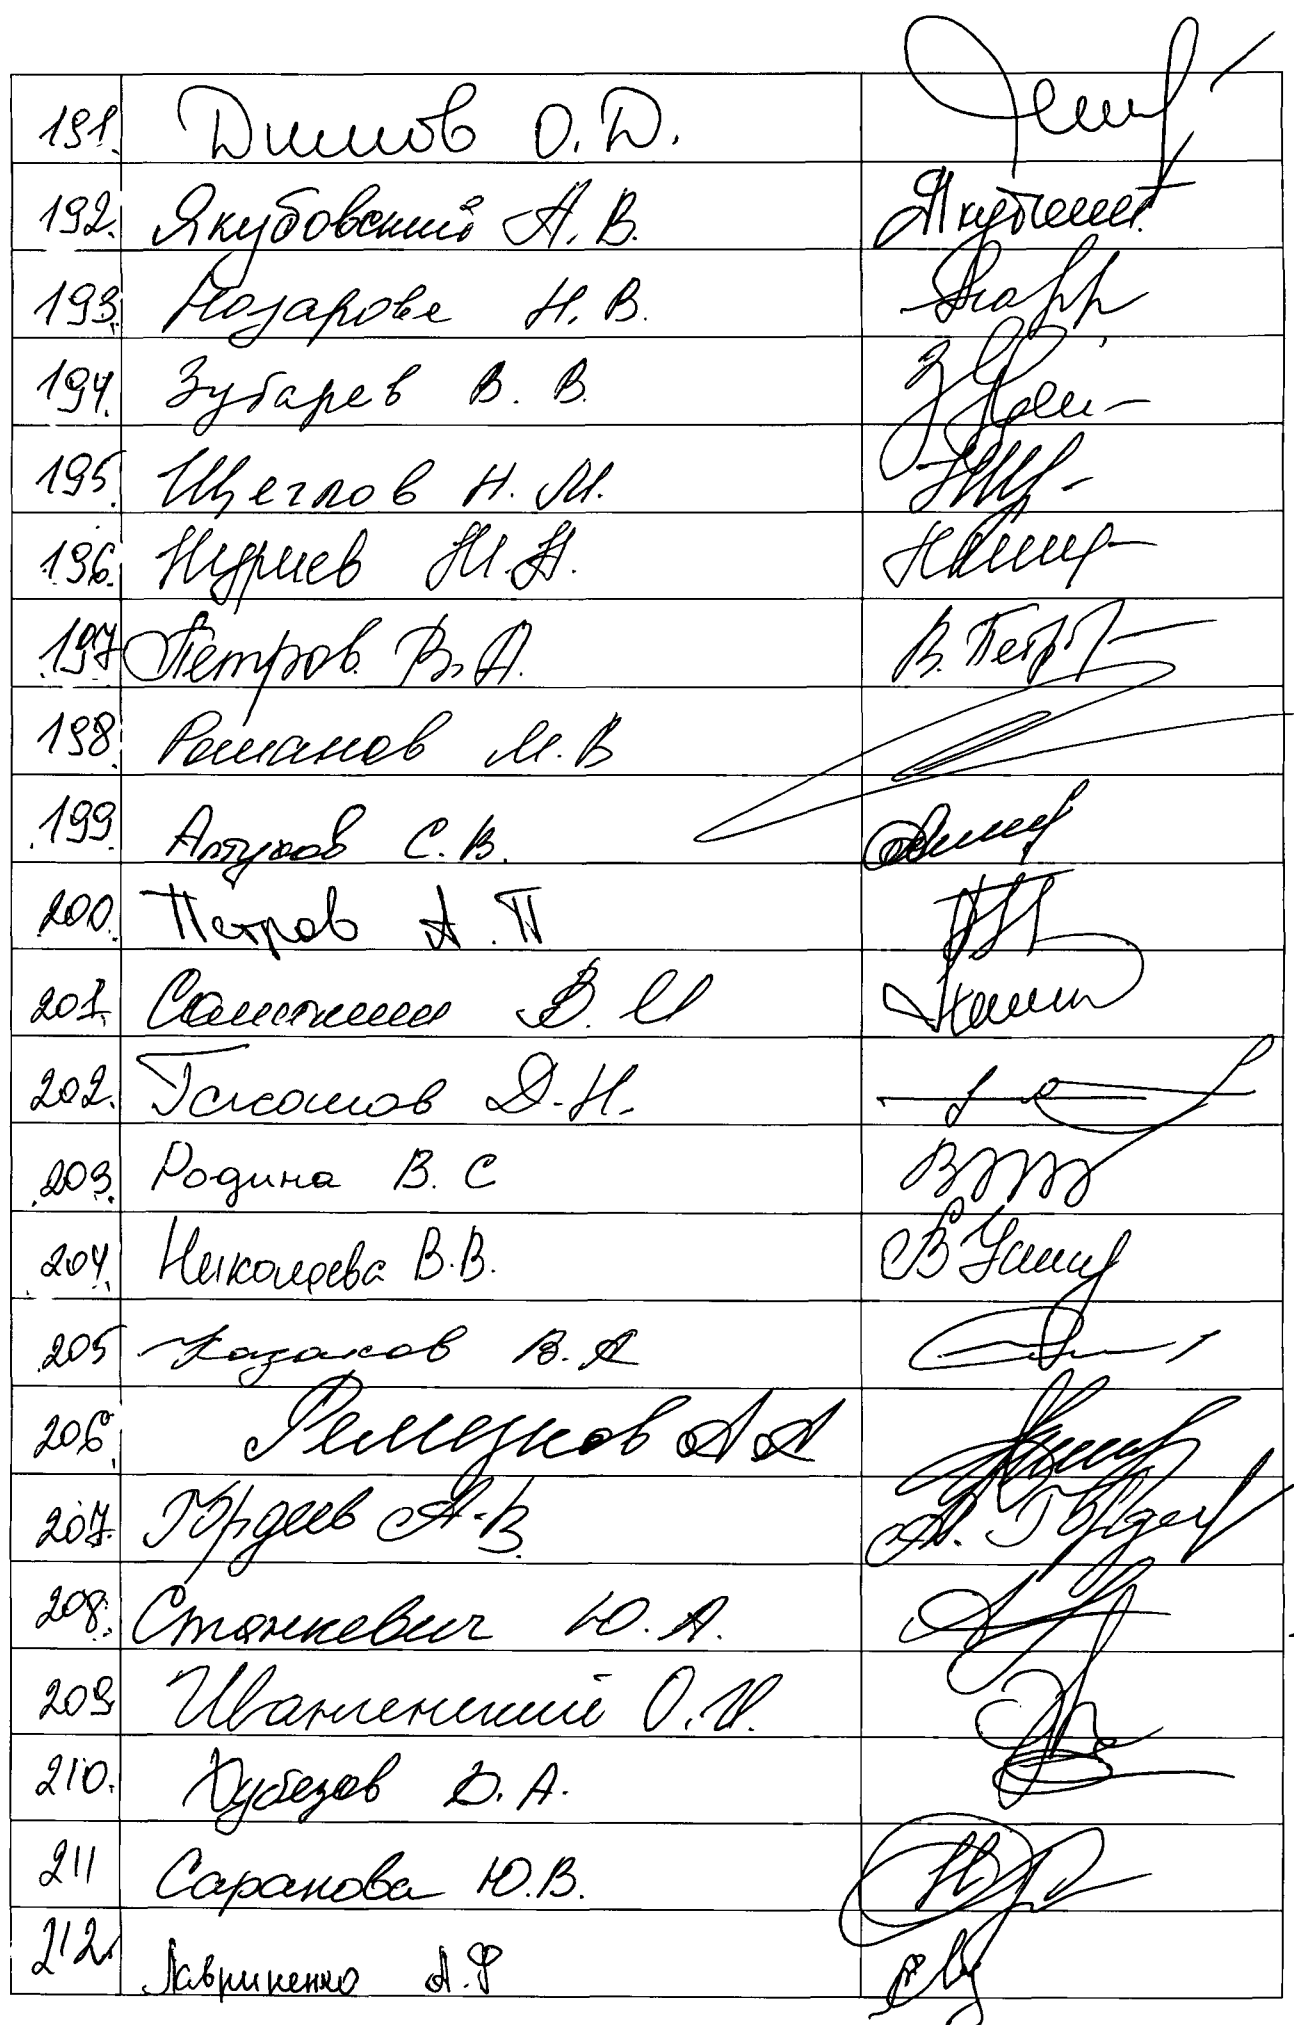 191. Димов О.D.
192. Якубовский А.В. Якубовский
193. Назарова Н.В.
194. Зубарев В.В.
195. Щеглов Н.М.
196. Нуриев Н.Н.
197 Петров В.А. В. Петр
198. Романов М.В
199. Алтухов С.В.
200. Петров А.П
201. В.И
202. Д.Н.
203. Родина В.С
204. Николаева В.В.
205 Казаков В.А
206. Ремезков А А
207. Гордеев А.В. А. Гордеев
208. Станкевич Ю.А.
209 О.И.
210. Хубезов Д.А.
211 Саранова Ю.В.
212. Лавриненко А.Ф